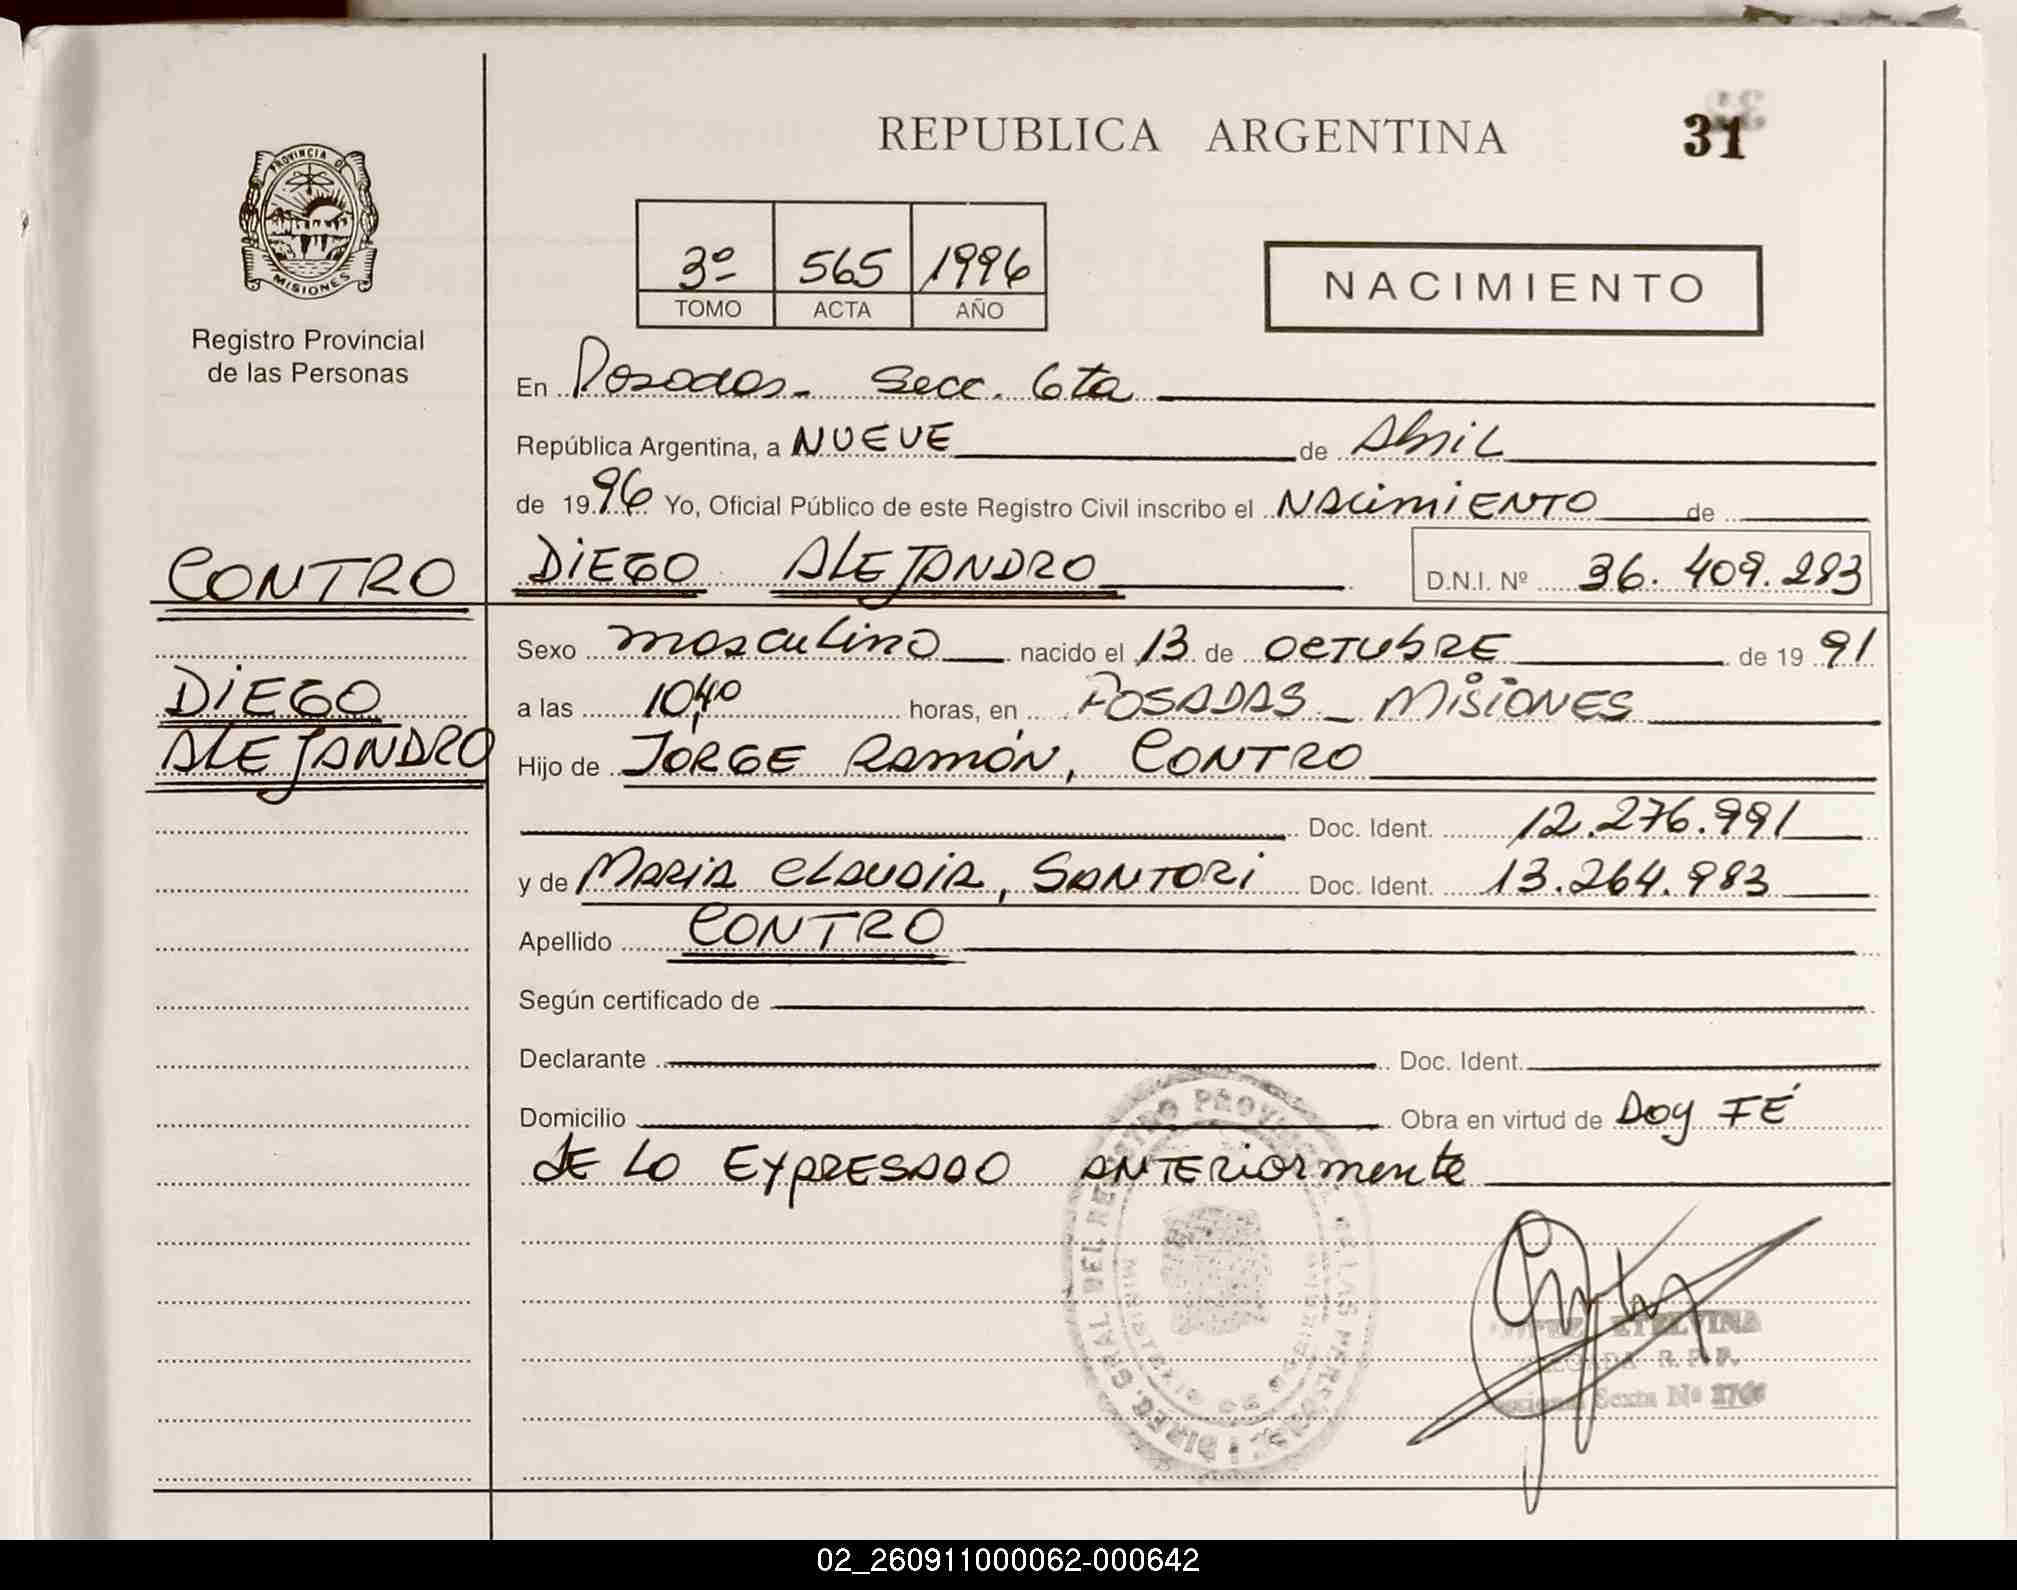 REPUBLICA ARGENTINA
31
PROVINCIA DE
MISIONES
Registro Provincial
de las Personas
3º 565 1996
TOMO ACTA AÑO
NACIMIENTO
En Posadas - Secc. 6ta
República Argentina, a NUEVE de Abril
de 1996 Yo, Oficial Público de este Registro Civil inscribo el NACIMIENTO de
CONTRO
DIEGO ALEJANDRO D.N.I. Nº 36.409.283
DIEGO
ALEJANDRO
Sexo masculino nacido el 13 de OCTUBRE de 1991
a las 10,40 horas, en POSADAS - MISIONES
Hijo de JORGE RAMÓN, CONTRO
Doc. Ident. 12.276.991
y de MARIA CLAUDIA, SANTORI Doc. Ident. 13.264.983
Apellido CONTRO
Según certificado de
Declarante Doc. Ident.
Domicilio Obra en virtud de Doy FÉ
de LO EXPRESADO ANTERIORMENTE
DIREC. GRAL. DEL REGISTRO PROVINCIAL DE LAS PERSONAS
MINISTERIO DE GOBIERNO
ETELVINA
R. P. P.
Sexta Nº
02_260911000062-000642